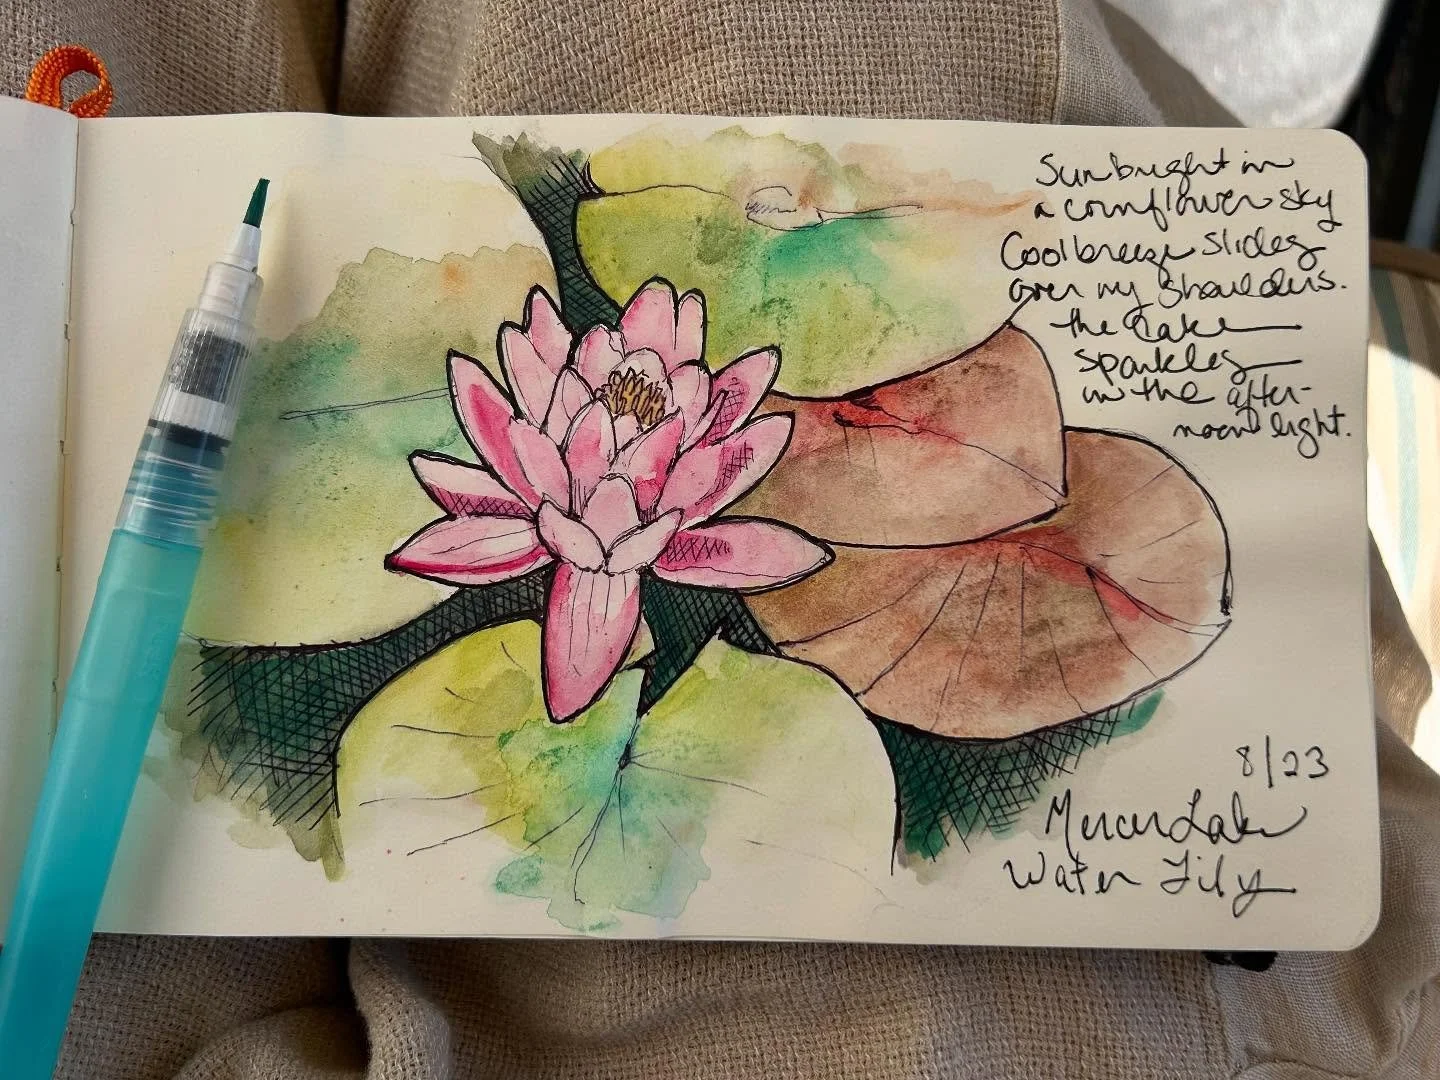 Sun bright in
a cornflower sky
Cool breeze slides
over my shoulders.
the lake
sparkles
in the after-
noon light.
8/23
Mercer Lake
Water Lily